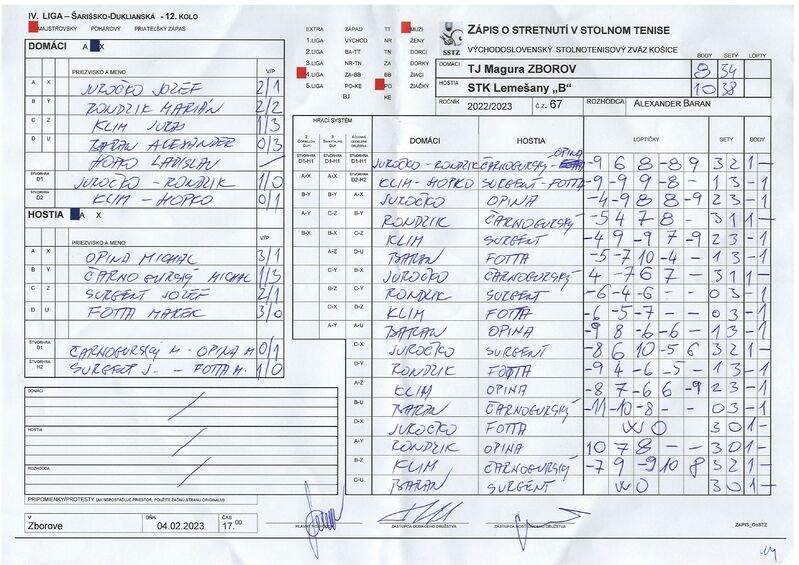 IV. LIGA – ŠARIŠSKO-DUKLIANSKÁ - 12. KOLO
MAJSTROVSKÝ POHÁROVÝ PRIATEĽSKÝ ZÁPAS
DOMÁCI A X
PRIEZVISKO A MENO V/P
A X JUROČKO JOZEF 2/1
B Y RONDZIK MARIÁN 2/2
C Z KLIM JURAJ 1/3
D U BARAN ALEXANDER 0/3
HOPKO LADISLAV –
ŠTVORHRA D1 JUROČKO – RONDZIK 1/0
ŠTVORHRA D2 KLIM – HOPKO 0/1
HOSTIA A X
PRIEZVISKO A MENO V/P
A X OPINA MICHAL 3/1
B Y ČARNOGURSKÝ MICHAL 1/3
C Z SURGENT JOZEF 2/1
D U FOTTA MAREK 3/0
ŠTVORHRA D1 ČARNOGURSKÝ M – OPINA M 0/1
ŠTVORHRA H2 SURGENT J. – FOTTA M. 1/0
DOMÁCI
HOSTIA
ROZHODCA
PRIPOMIENKY/PROTESTY (AK NEPOSTAČUJE PRIESTOR, POUŽITE ZADNÚ STRANU ORIGINÁLU)
V Zborove DŇA 04.02.2023 ČAS 17.00
EXTRA ZÁPAD TT MUŽI
1.LIGA VÝCHOD NR ŽENY
2.LIGA BA-TT TN DORCI
3.LIGA NR-TN ZA DORKY
4.LIGA ZA-BB BB ŽIACI
5.LIGA PO-KE PO ŽIAČKY
BJ KE
SSTZ
ZÁPIS O STRETNUTÍ V STOLNOM TENISE
VÝCHODOSLOVENSKÝ STOLNOTENISOVÝ ZVÄZ KOŠICE
BODY SETY LOPTY
DOMÁCI TJ Magura ZBOROV 8 34
HOSTIA STK Lemešany „B" 10 38
ROČNÍK 2022/2023 č.z. 67 ROZHODCA ALEXANDER BARAN
HRACÍ SYSTÉM
DOMÁCI HOSTIA LOPTIČKY SETY BODY
OPINA
JUROČKO - RONDZIK ČARNOGURSKÝ - -9 6 8 -8 9 3 2 1 –
KLIM - HOPKO SURGENT - FOTTA -9 -9 9 -8 – 1 3 – 1
JUROČKO OPINA -4 -9 8 8 -9 2 3 – 1
RONDZIK ČARNOGURSKÝ -5 4 7 8 – 3 1 1 –
KLIM SURGENT -4 9 -9 7 -9 2 3 – 1
BARAN FOTTA -5 -7 10 -4 – 1 3 – 1
JUROČKO ČARNOGURSKÝ 4 -7 6 7 – 3 1 1 –
RONDZIK SURGENT -6 -4 -6 – – 0 3 – 1
KLIM FOTTA -6 -5 -7 – – 0 3 – 1
BARAN OPINA -9 8 -6 -6 – 1 3 – 1
JUROČKO SURGENT -8 6 10 -5 6 3 2 1 –
RONDZIK FOTTA -9 4 -6 -5 – 1 3 – 1
KLIM OPINA -8 7 -6 6 -9 2 3 – 1
BARAN ČARNOGURSKÝ -11 -10 -8 – – 0 3 – 1
JUROČKO FOTTA WO 3 0 1 –
RONDZIK OPINA 10 7 8 – – 3 0 1 –
KLIM ČARNOGURSKÝ -7 9 -9 10 8 3 2 1 –
BARAN SURGENT WO 3 0 1 –
ZÁSTUPCA DOMÁCEHO DRUŽSTVA
ZÁPIS_OsSTZ